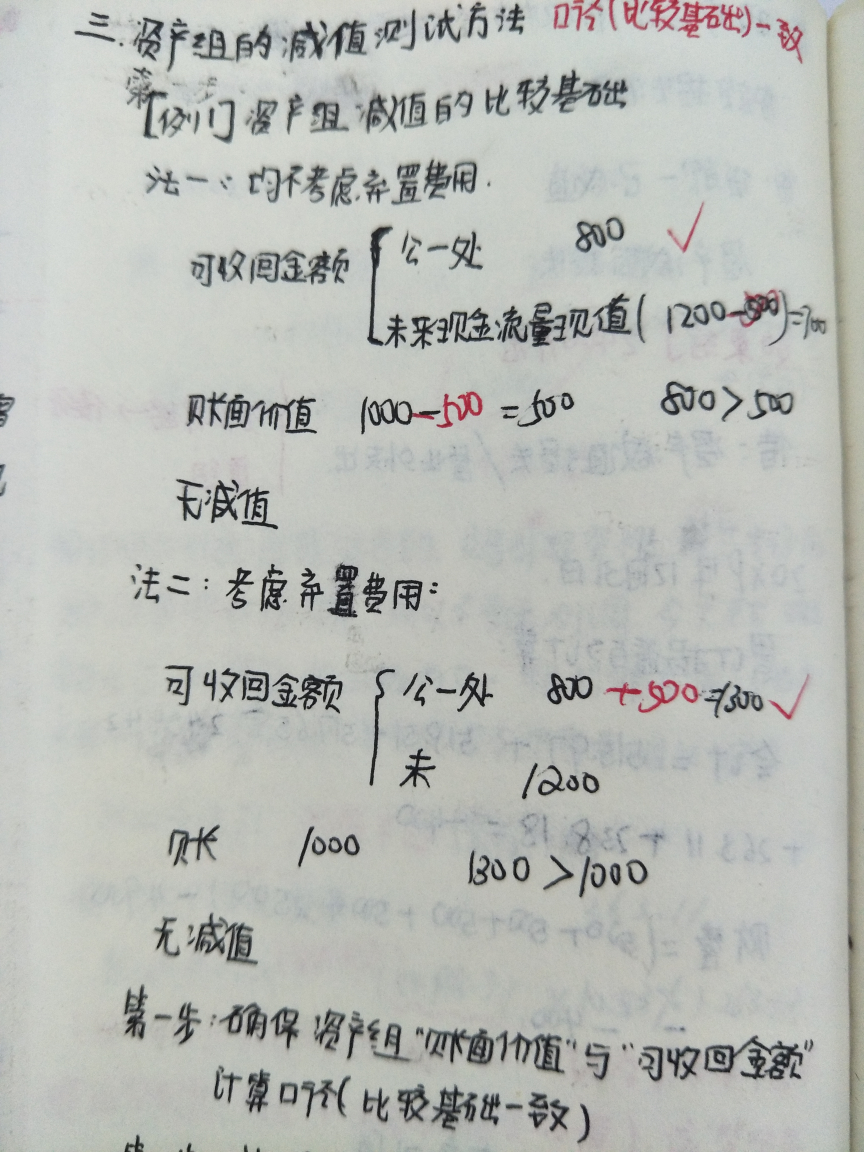 三.资产组的减值测试方法 口径(比较基础)一致
第一步
[例11]资产组减值的比较基础
法一:均不考虑弃置费用.
可收回金额 { 公一处 800 ✓
未来现金流量现值(1200-500)=700
账面价值 1000-500=500 800>500
无减值
法二:考虑弃置费用:
可收回金额 { 公一处 800+500=1300 ✓
未 1200
账 1000
1300>1000
无减值
第一步:确保资产组"账面价值"与"可收回金额"
计算口径(比较基础一致)